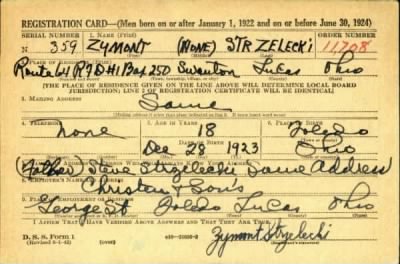 REGISTRATION CARD—(Men born on or after January 1, 1922 and on or before June 30, 1924)
SERIAL NUMBER ORDER NUMBER
N 359 ZYMONT (NONE) STRZELECKI 11,708
Route 64 RFD #1 Box 250 Swanton Lucas Ohio
[THE PLACE OF RESIDENCE GIVEN ON THE LINE ABOVE WILL DETERMINE LOCAL BOARD
JURISDICTION; LINE 2 OF REGISTRATION CERTIFICATE WILL BE IDENTICAL]
3. MAILING ADDRESS
Same
4. TELEPHONE 5. AGE IN YEARS 6. PLACE OF BIRTH
None 18 Toledo
DATE OF BIRTH
Dec 28 1923 Ohio
Father Steve Strzelecki Same Address
8. EMPLOYER'S NAME AND ADDRESS
Christen & Sons
George St Toledo Lucas Ohio
I AFFIRM THAT I HAVE VERIFIED ABOVE ANSWERS AND THAT THEY ARE TRUE.
D. S. S. Form 1
Zymont Strzelecki